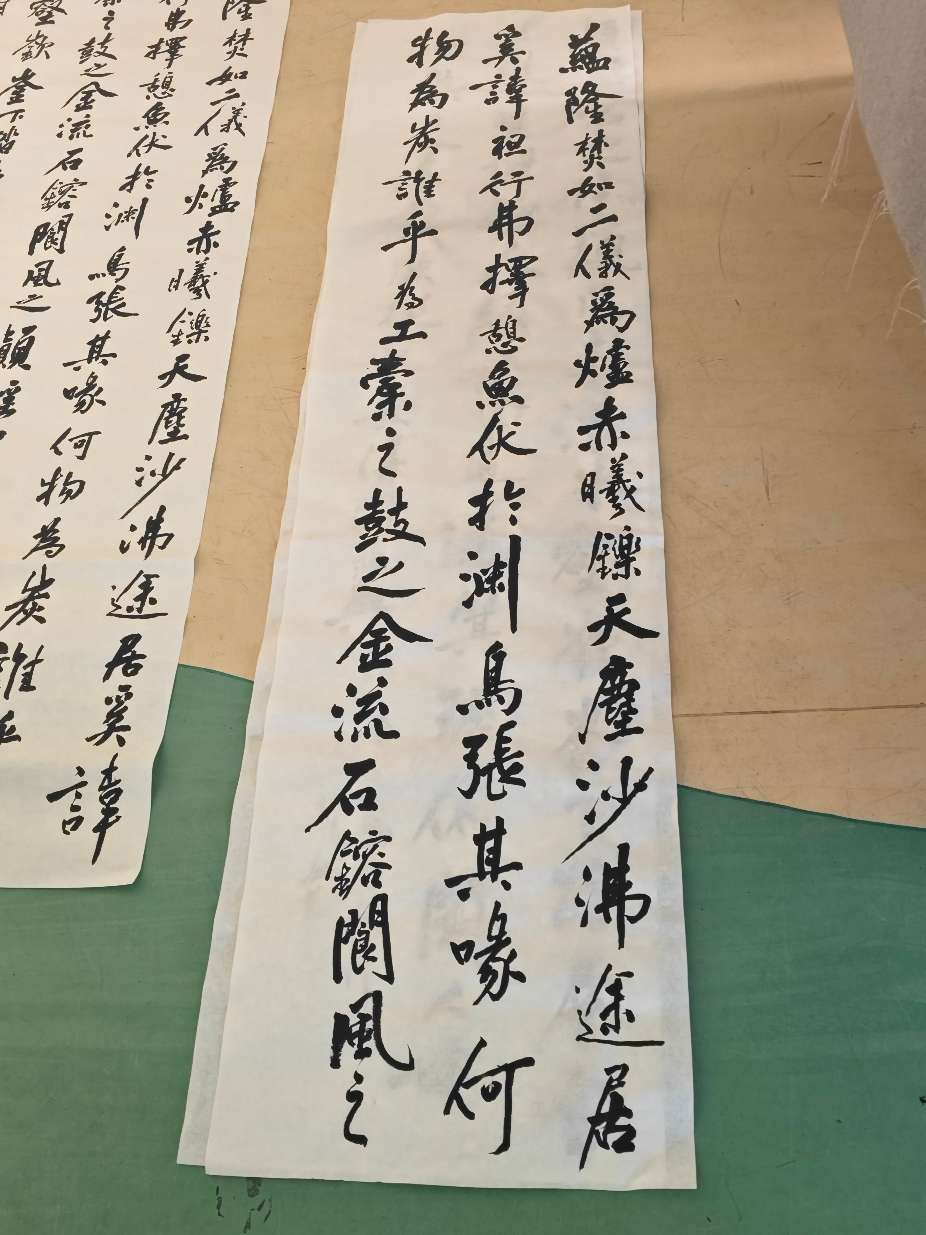 蘊隆焚如二儀爲爐赤曦鑠天塵沙沸途居
奚諱袒行弗擇憩魚伏於淵鳥張其喙何
物為炭誰乎為工橐之鼓之金流石鎔閬風之
隆焚如二儀爲爐赤曦鑠天塵沙沸途居奚諱
弗擇憩魚伏於淵鳥張其喙何物為炭誰乎
之鼓之金流石鎔閬風之顛
壑嵌崟下踏